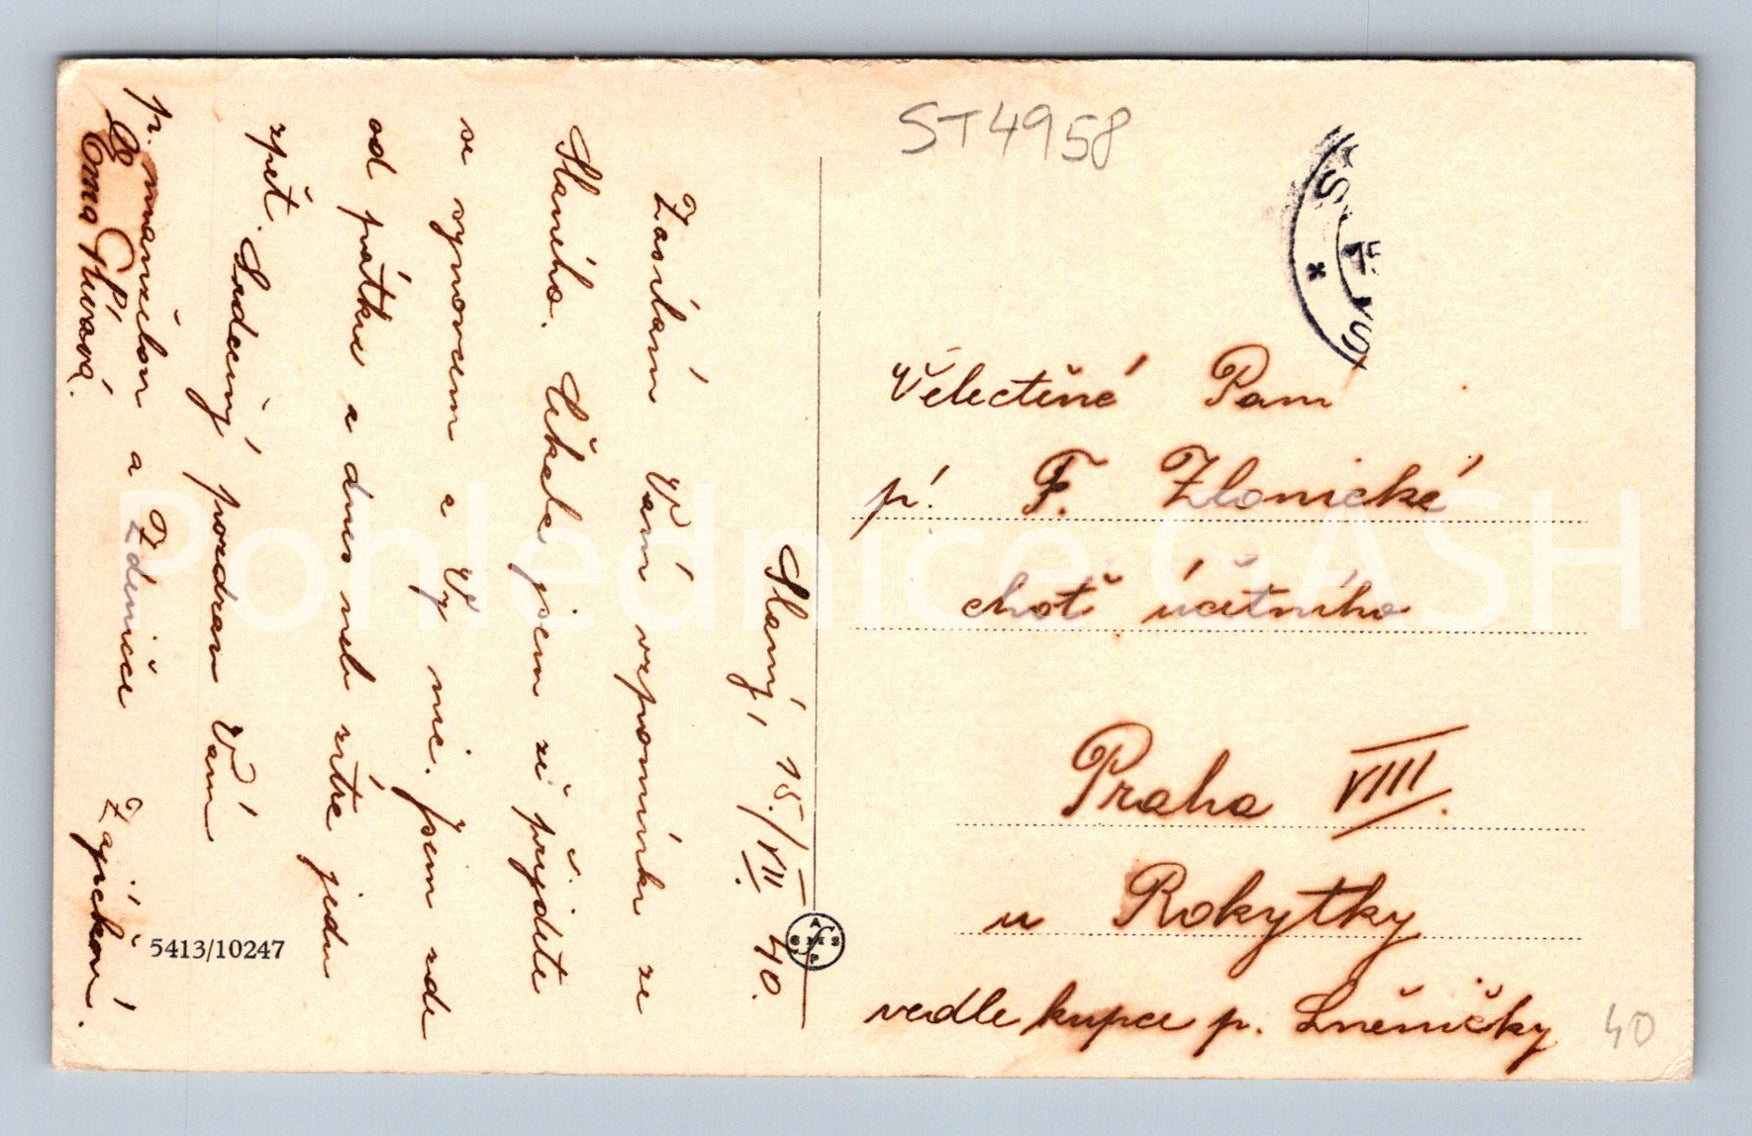 Slaný, 15./VII. 40.
Zasílám Vám vzpomínku ze
Slaného. Čekala jsem že přijdete
se synovcem a Vy nic. Jsem zde
od pátku a dnes neb zítra jedu
zpět. Srdečný pozdrav Vám
p. manželovi a Zdeničce Zajíčkovi.
Ema
ST4958
Velectěné Paní
p. F. Zlonické
choť účetního
Praha VIII.
u Rokytky
vedle kupce p. Sněničky
40
5413/10247
Pohlednice GASH